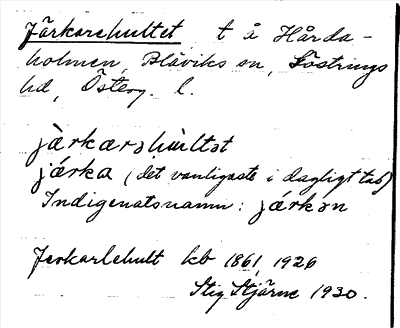 Järkarehultet t å Hårda-
holmen, Blåviks sn, Göstrings
hd, Österg. l.
jà̀rkarəhùltət
jɑ́rka (det vanligaste i dagligt tal)
Indigenatsnamn: jɑ́rkən
Jerkarlehult kb 1861, 1926
Stig Stjärne 1930.